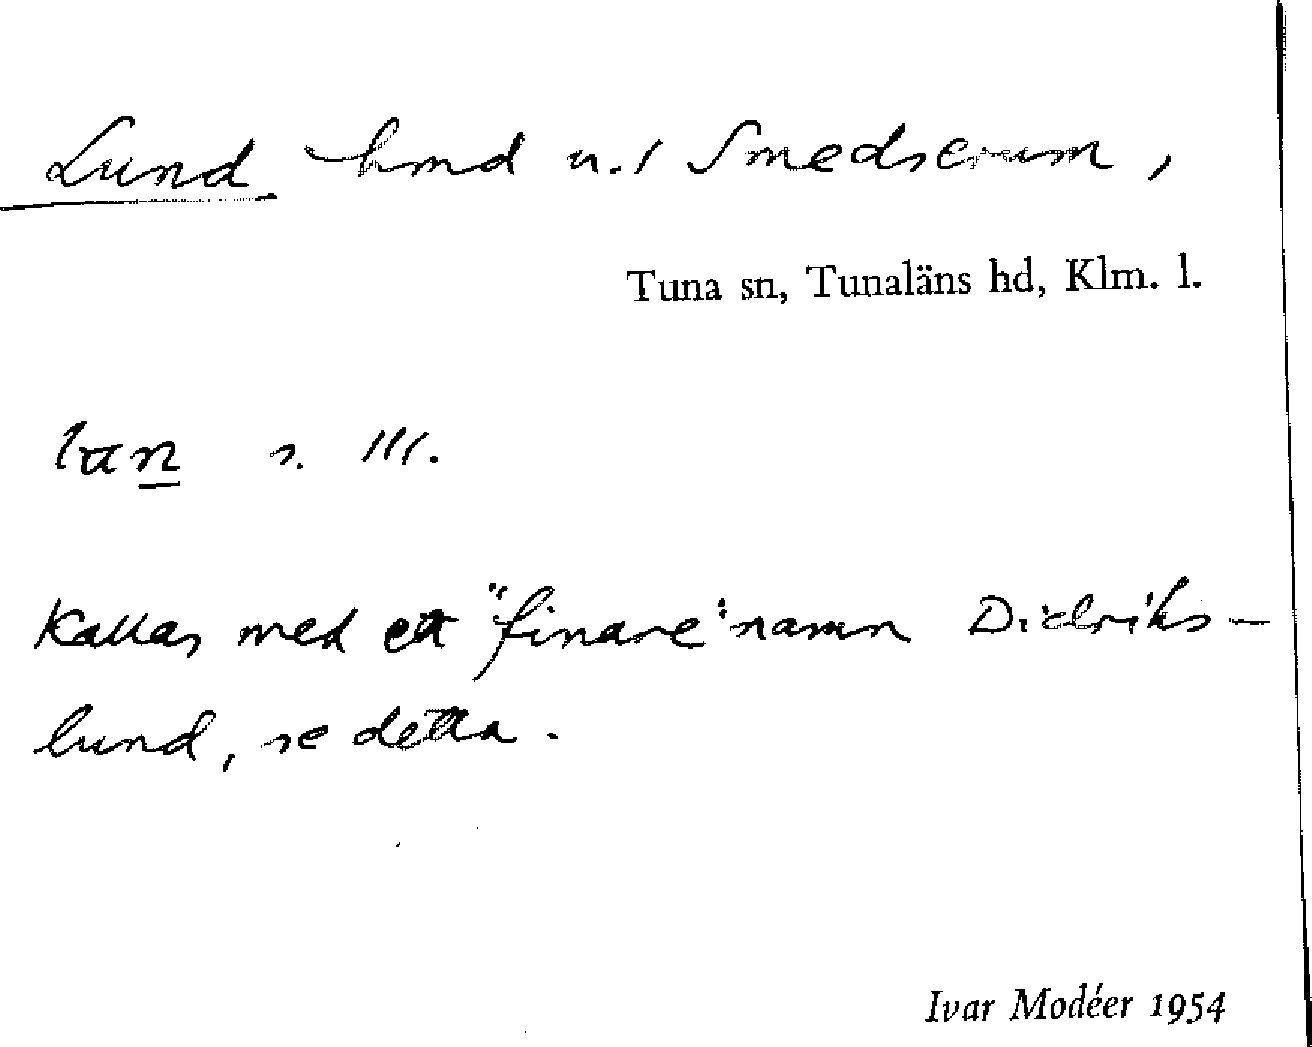 Lund hmd u./ Smedserum,
Tuna sn, Tunaläns hd, Klm. l.
lun s. III.
Kallas med ett "finare" namn Didriks-
lund, se detta.
Ivar Modéer 1954